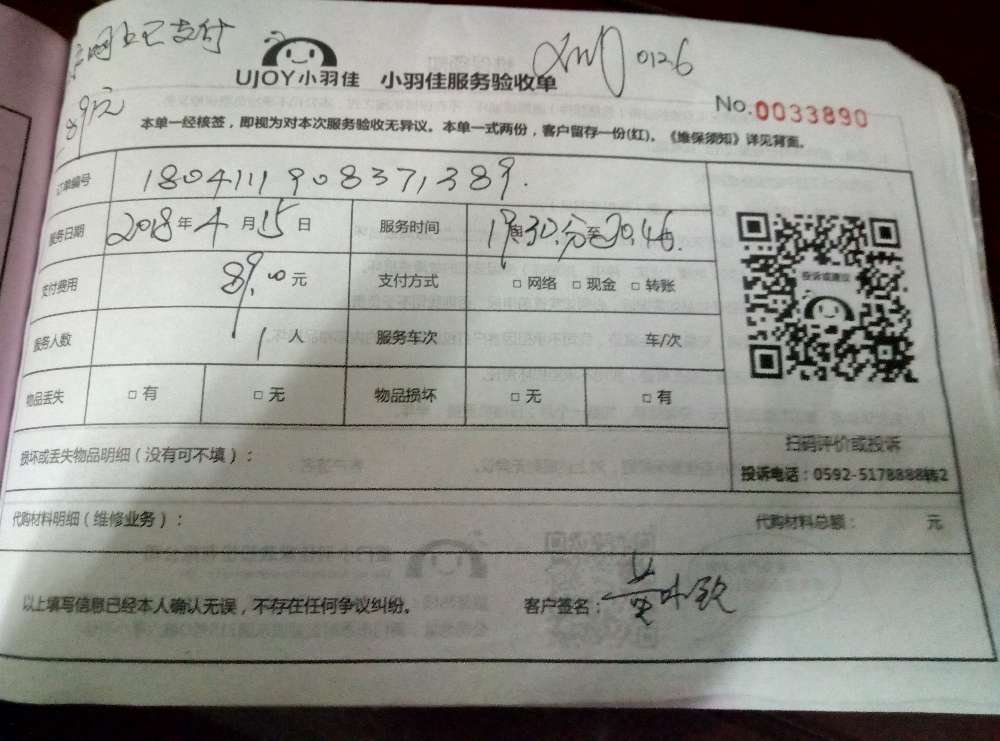 网上已支付
89元
UJOY小羽佳 小羽佳服务验收单
0126
No.0033890
本单一经核签，即视为对本次服务验收无异议。本单一式两份，客户留存一份(红)。《维保须知》详见背面。
订单编号 1804111908371389.
服务日期 2018年4月15日 服务时间 19时30分至20.46.
支付费用 89.00元 支付方式 □网络 □现金 □转账
服务人数 1人 服务车次 车/次
物品丢失 □有 □无 物品损坏 □无 □有
投诉或建议
扫码评价或投诉
投诉电话：0592-5178888转2
损坏或丢失物品明细（没有可不填）：
代购材料明细（维修业务）： 代购材料总额： 元
以上填写信息已经本人确认无误，不存在任何争议纠纷。 客户签名：